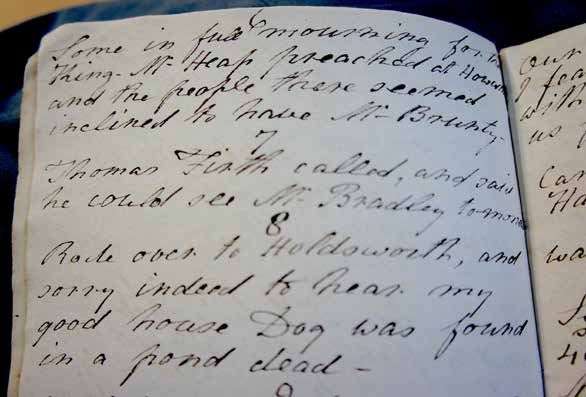 6
Some in full mourning for the
King - Mr Heap preached at Howorth
and the people there seemed
inclined to have Mr Brunty.
7
Thomas Firth called, and said
he could see Mr Bradley to-morrow
8
Rode over to Holdsworth, and
sorry indeed to hear my
good house Dog was found
in a pond dead -
9
our
I fea
with
us
Can
Ha
wa
4